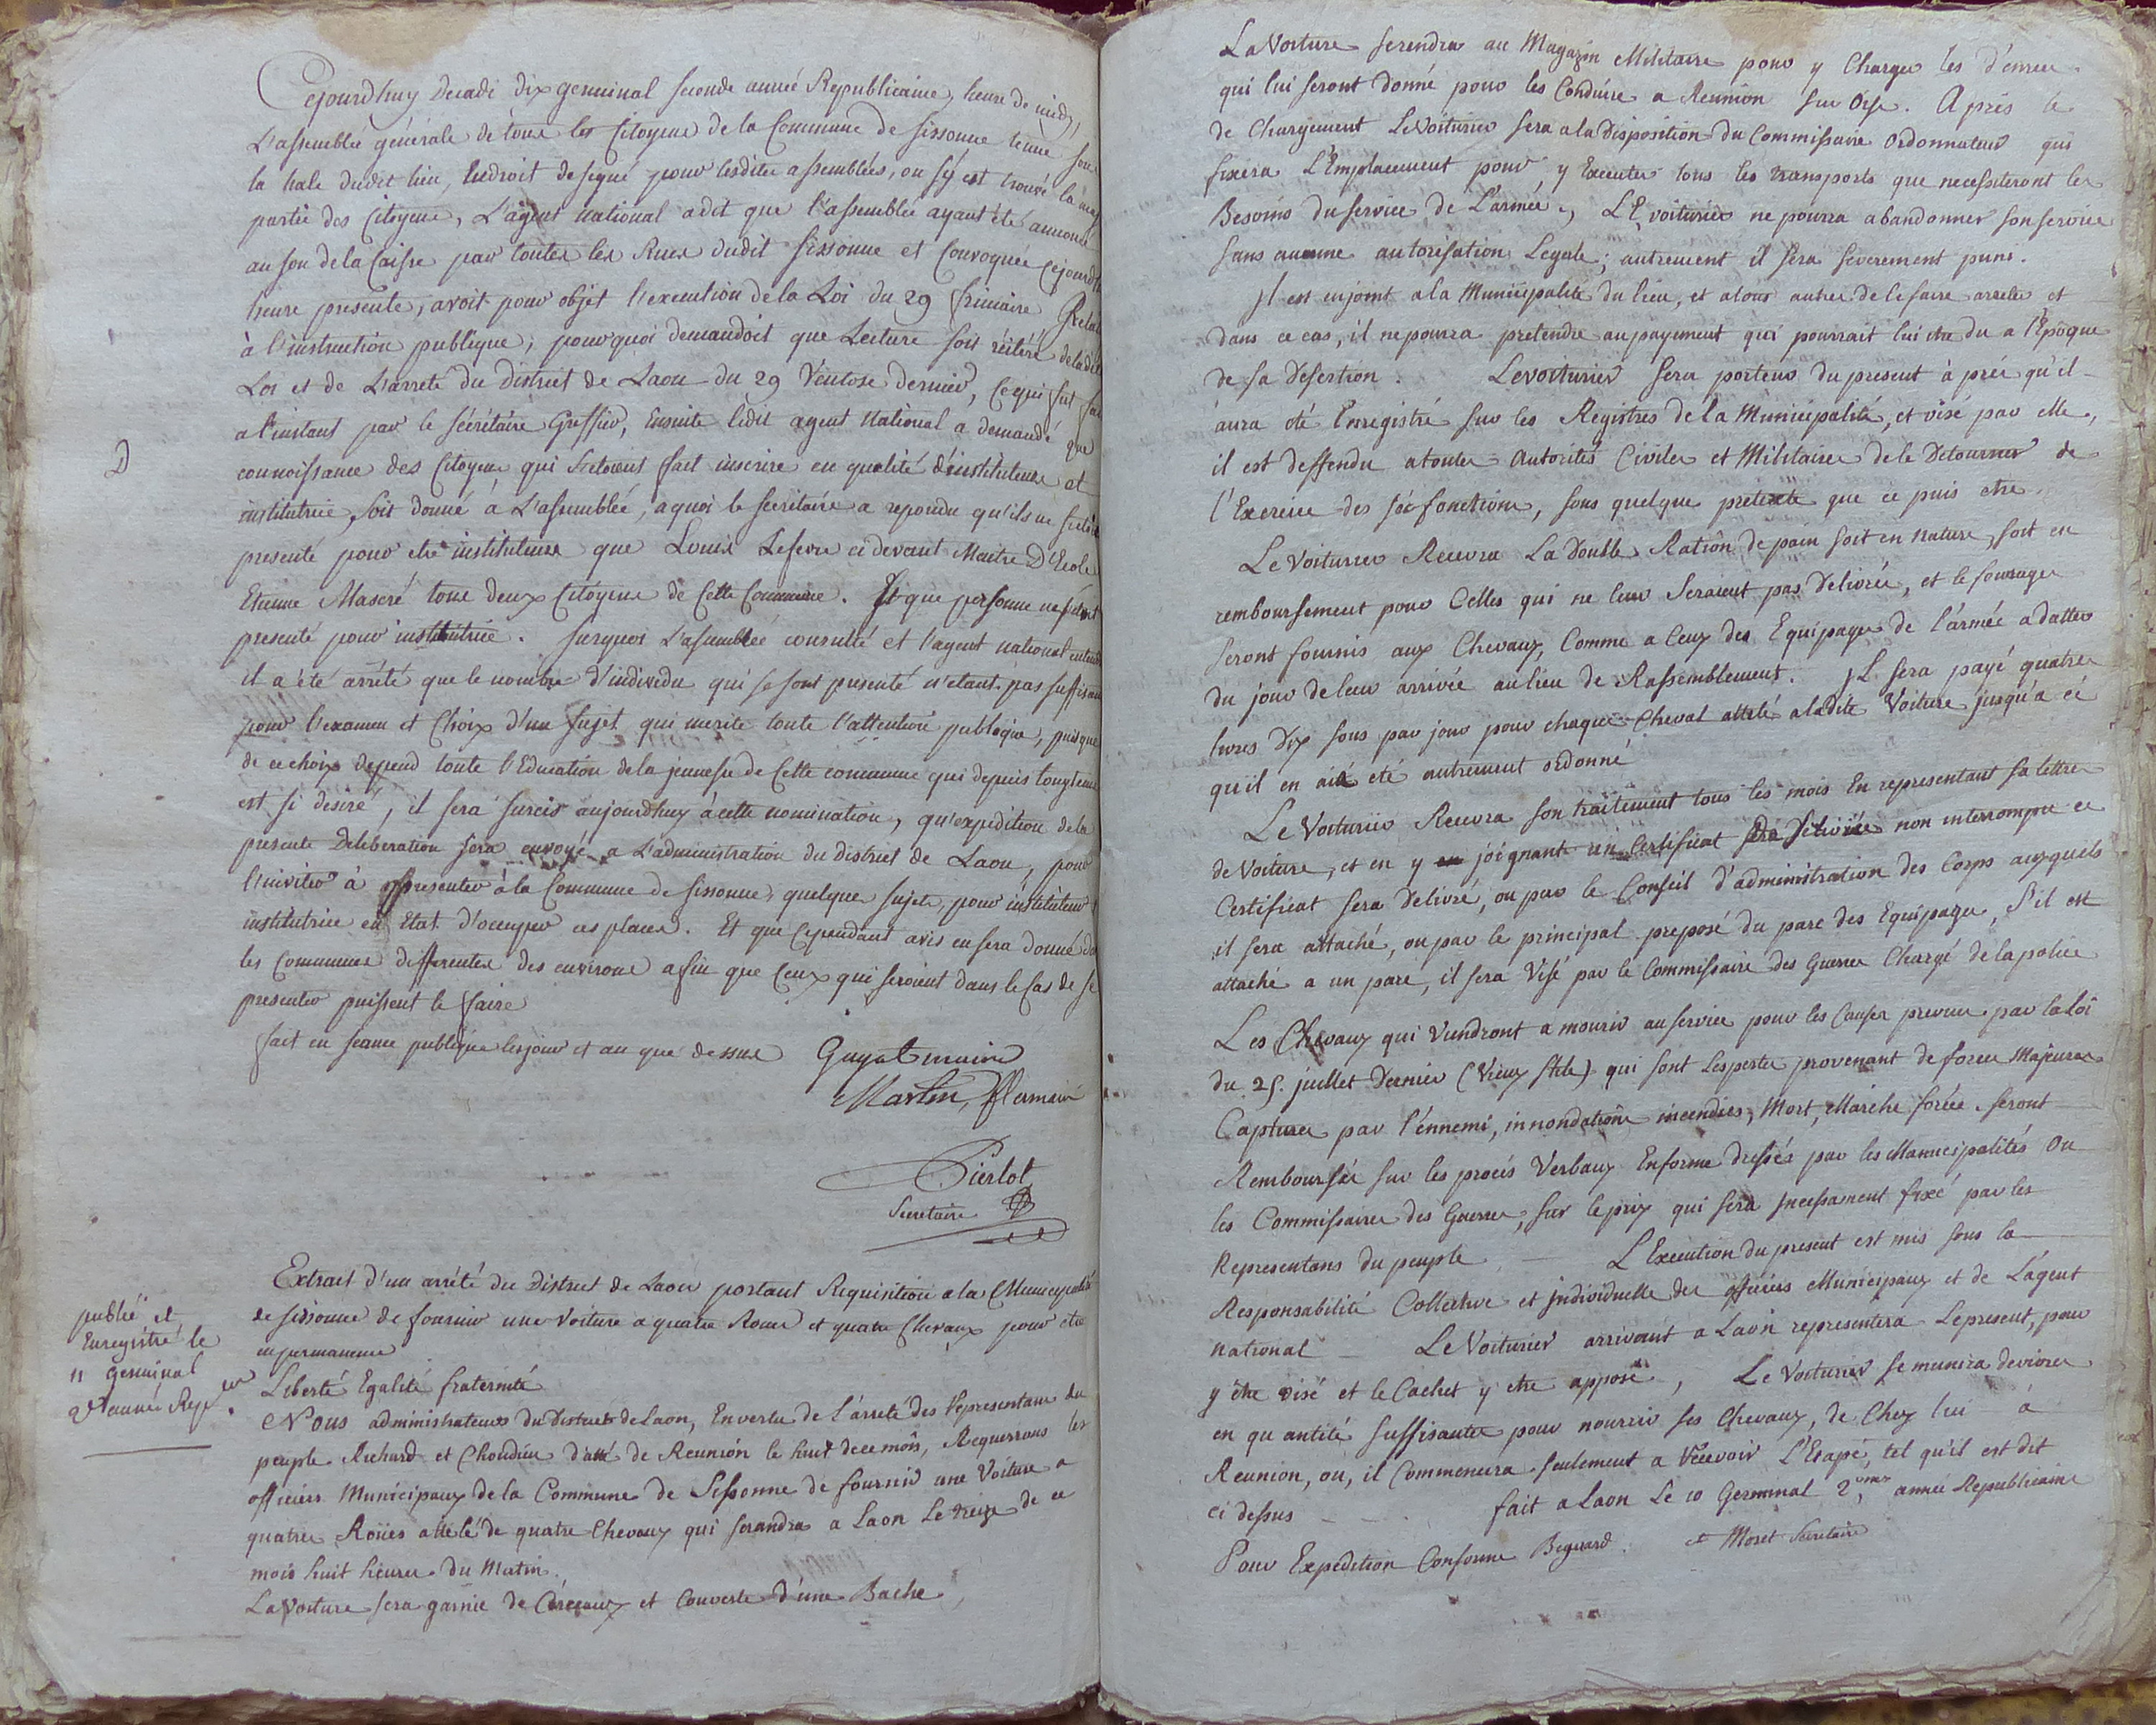 Cejourdhuy Decadi dix germinal seconde année Republicaine, heure de midy,
L'assemblée générale de tous les Citoyens de la Commune de Sissonne tenue sous
la hale dudit lieu, Endroit designé pour lesdites assemblées, ou s'y est trouvé la
partie des Citoyens, L'agent national a dit que l'assemblée ayant été annoncé
au son de la Caisse par toutes les Rues dudit Sissonne et Convoquée Cejourd
heure presente, avoit pour objet l'execution de la Loi du 29 frimaire Relat
à l'instruction publique; pourquoi demandoit que Lecture soit réitéré de ladit
Loi et de L'arreté du District de Laon du 29 Ventose dernier, Ce qui fut
a l'instant par le sécrétaire Greffier, Ensuite ledit agent National a demandé que
D
connoissance des Citoyens qui s'etoient fait inscrire en qualité d'instituteurs et
institutrice, soit donné à L'assemblée, a quoi le secretaire a repondu qu'ils ne
presenté pour etre instituteurs que Louis Lefevre ci devant Maitre D'Ecole
Etienne Mascré tous deux Citoyens de Cette Commune. Et que personne ne
presenté pour institutrice. Surquoi L'assemblée consulté et l'agent national entendu
il a été arrêté que le nombre d'individu qui se sont presenté n'etant pas suffisan
pour l'examen et Choix d'un sujet qui merite toute l'attention publique, puisque
de ce choix depend toute l'Education de la jeunesse de Cette commune qui depuis longtems
est si desiré, il sera surcis aujourdhuy à cette nomination, qu'expedition de la
presente Deliberation sera envoyé a L'administration du District de Laon, pour
l'inviter à presenter à la Commune de Sissonne, quelque sujets, pour instituteur
institutrice en Etat d'occuper ces places. Et que Cependant avis en sera donné
les Communes differentes des environs afin que Ceux qui seroient dans le Cas de se
presenter puissent le faire
fait en seance publique les jour et an que dessus Guyot maire
Martin,
Pierlot
Secretaire
Extrait d'un arrété du District de Laon portant Requisition a la Municipalité
de Sissonne de fournir une Voiture a quatre Roues et quatre Chevaux pour etre
en permanence
publié et
Enregistré le
11 Germinal
2e année Rep.
Liberté Egalité fraternité
Nous administrateurs du District de Laon, En vertu de l'arreté des Representans du
peuple Richard et Choudieu datté de Reunion le huit de ce mois, Requerrons les
officiers Municipaux de la Commune de Sissonne de fournir une Voiture a
quatre Roües attelé de quatre Chevaux qui serandra a Laon Le treize de ce
mois huit heures du Matin.
La Voiture sera garnie de Cerceaux et Couverte d'une Bache
La Voiture serendra au Magazin Militaire pour y Charger les d'enrées
qui lui seront Donné pour les Conduire a Reunion sur Oise. Après le
de Chargement Le Voiturier sera a la Disposition du Commissaire Ordonnateur qui
fixera L'Emplacement pour y Executer tous les transports que necessiteront les
Besoins du service de L'armée, LE voiturier ne pourra abandonner son service
sans aucune autorisation Legale; autrement il sera séverement puni.
Il est enjoint a la Municipalité du lieu, et a tous autres de le faire arrêter et
dans ce cas, il ne pourra pretendre au payement qui pourrait lui être du a l'Epoque
de sa Desertion. Le voiturier sera porteur du present à prés qu'il
aura eté Enregistré sur les Registres de la Municipalité, et visé par elle,
il est deffendu a toutes autorités Civiles et Militaires de le Detourner de
l'Exercice des sés fonctions, sous quelque pretexte que ce puis etre.
Le Voiturier Recevra La Double Ration de pain soit en nature, soit en
remboursement pour Celles qui ne leur Seraient pas Delivrée, et le fourrage
seront fournis aux Chevaux, Comme a Ceux des Equipages de l'armée a datter
du jour de leur arrivée au lieu de Rassemblement. IL sera payé quatre
livres Dix sous par jour pour chaque Cheval attelé a ladite Voiture jusqu'a ce
qu'il en ait eté autrement ordonné
Le Voiturier Recevra son traitement tous les mois En representant sa lettre
de Voiture, et en y joignant un Certificat non interrompu ce
Certificat sera Delivré, ou par le Conseil d'administration des Corps auxquels
il sera attaché, ou par le principal preposé du parc des Equipages, S'il est
attaché a un parc, il sera Visé par le Commissaire des Guerres Chargé de la police
Les Chevaux qui Viendront a mourir au service pour les Causes prevues par la Loi
du 25. juillet Dernier (Vieux stile) qui sont Les pertes provenant de force Majeures
Captures par l'énnemi, innondations incendies, Mort, Marche forcée. seront
Remboursés sur les procés Verbaux En forme dressés par les Municipalités Ou
les Commissaires des Guerres, sur le prix qui sera Incessament fixé par les
Representans du peuple. — L'Execution du present est mis sous la
Responsabilité Collective et individuelle des officiers Municipaux et de L'agent
national — Le Voiturier arrivant a Laon representera Le present, pour
y être visé et le Cachet y etre apposé, Le Voiturier se munira de vivres
en quantité suffisantes pour nourrir ses Chevaux, de Chez lui à
Reunion, ou, il Commencera seulement a recevoir L'Etape, tel qu'il est dit
ci dessus — fait a Laon Le 10 Germinal 2eme année Republicaine
Pour Expedition Conforme Beguard. et Moret Secretaire